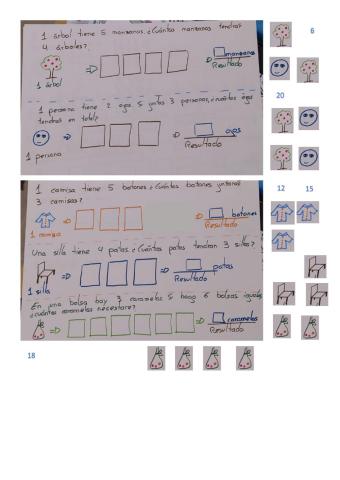 1 árbol tiene 5 manzanas. ¿Cuántas manzanas tendrán
4 árboles?
6
⇒ manzanas
1 árbol Resultado
20
1 persona tiene 2 ojos. Si junto 3 personas, ¿cuántos ojos
tendrás en total?
⇒ ⇒ ojos
1 persona Resultado
1 camisa tiene 5 botones. ¿Cuántos botones juntaras
3 camisas?
12 15
⇒ ⇒ botones
1 camisa Resultado
Una silla tiene 4 patas. ¿Cuántas patas tendran 3 sillas?
⇒ ⇒ patas
1 silla Resultado
En una bolsa hay 3 caramelos. Si hago 6 bolsas iguales
¿cuántos caramelos necesitare?
⇒ ⇒ caramelos
Resultado
18